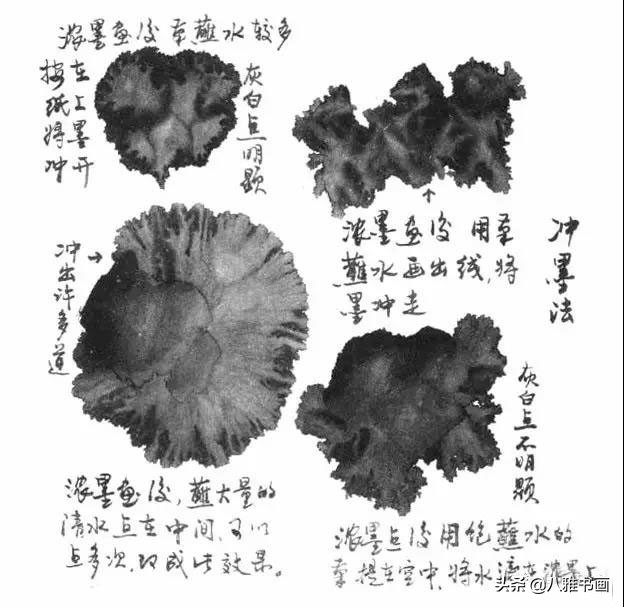 浓墨画後笔蘸水较多
按在
纸上
将墨
冲开
灰白点明顯
浓墨画後用笔
蘸水画出线,将
墨冲走
冲墨法
冲出许多道
浓墨画後,蘸大量的
清水点在中间,可以
点多次,即成此效果。
灰白点不明顯
浓墨点後用饱蘸水的
笔提在空中,将水滴在浓墨上
头条@八雅书画